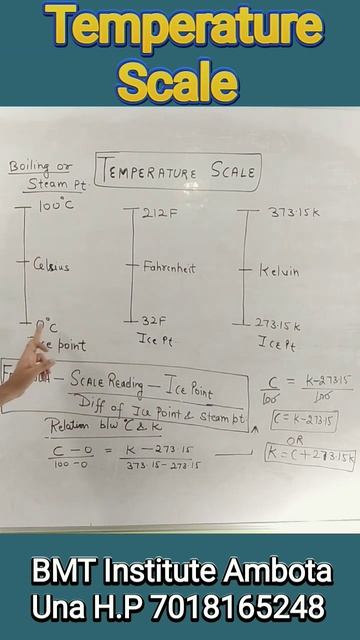 Temperature
Scale
Boiling or
Steam Pt.
TEMPERATURE SCALE
100°C
212F
373.15K
Celsius
Fahrenheit
Kelvin
0°C
32F
273.15K
Ice point
Ice Pt.
ICE Pt
SCALE Reading - ICE POINT
Diff of Ice Point & Steam pt.
C/100 = K-273.15/100
C = K-273.15
OR
K = C + 273.15K
Relation b/w C & K
C - 0/100 - 0 = K - 273.15/373.15 - 273.15
BMT Institute Ambota
Una H.P 7018165248